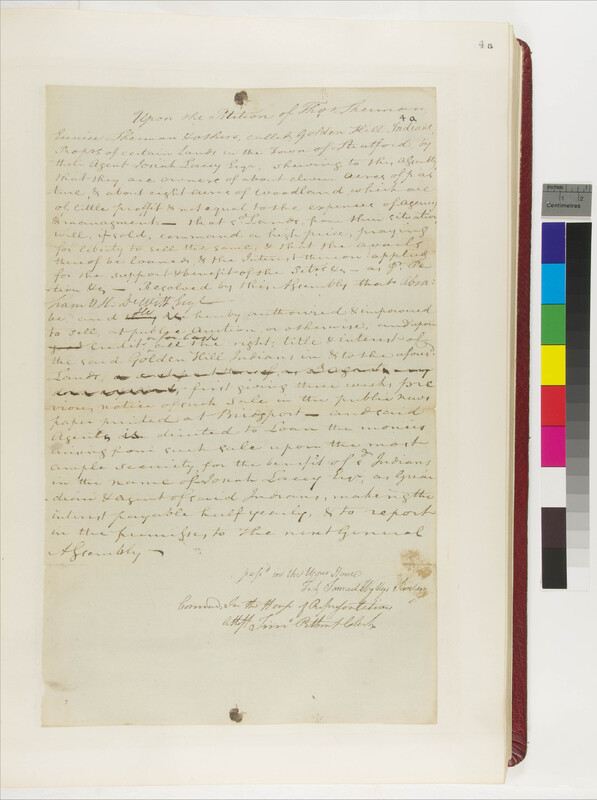 4a
Upon the Petition of Thos. Sherman
4a
Eunice Sherman & others, called Golden Hill Indians
Proprs. of certain Lands in the Town of Stratford, by
their Agent Josiah Lacey Esqr., shewing to this Assembly
that they are owners of about eleven acres of pas
ture, & about eight acres of woodland which are
of little proffit & not equal to the expences of Agency
& managment — that sd. Lands, from their situation
will, if sold, command a high price, praying
for liberty to sell the same, & that the avails
thereof be loaned & the Interest thereon applied
for the support & benefit of the Petrs. &c — as pr. Pe
tion &c — Resolved by this Assembly that Abra
ham V. H. DeWitt Esqr.
be and is hereby authorised & empowered
to sell, at public Auction or otherwise, and upon
Credit, or for Cash all the right, title & interest of
the said Golden Hill Indians in & to the aforesd.
Lands, first giving three weeks pre
vious notice of such sale in the public news
paper printed at Bridgport — and said
Agent is directed to Loan the monies
arising from such sale upon the most
ample security, for the benefit of sd. Indians
in the name of Josiah Lacey Esqr. as Guar
dian & Agent of said Indians, making the
interest payable half yearly, & to report
in the premises, to the next General
Assembly —
passd. in the Upper House
Test Samuel Wyllys Secrety
Concurd. In the House of Representatives
Attest Timo. Pitkin Jr Clerk
inches 1
centimetres 1 2